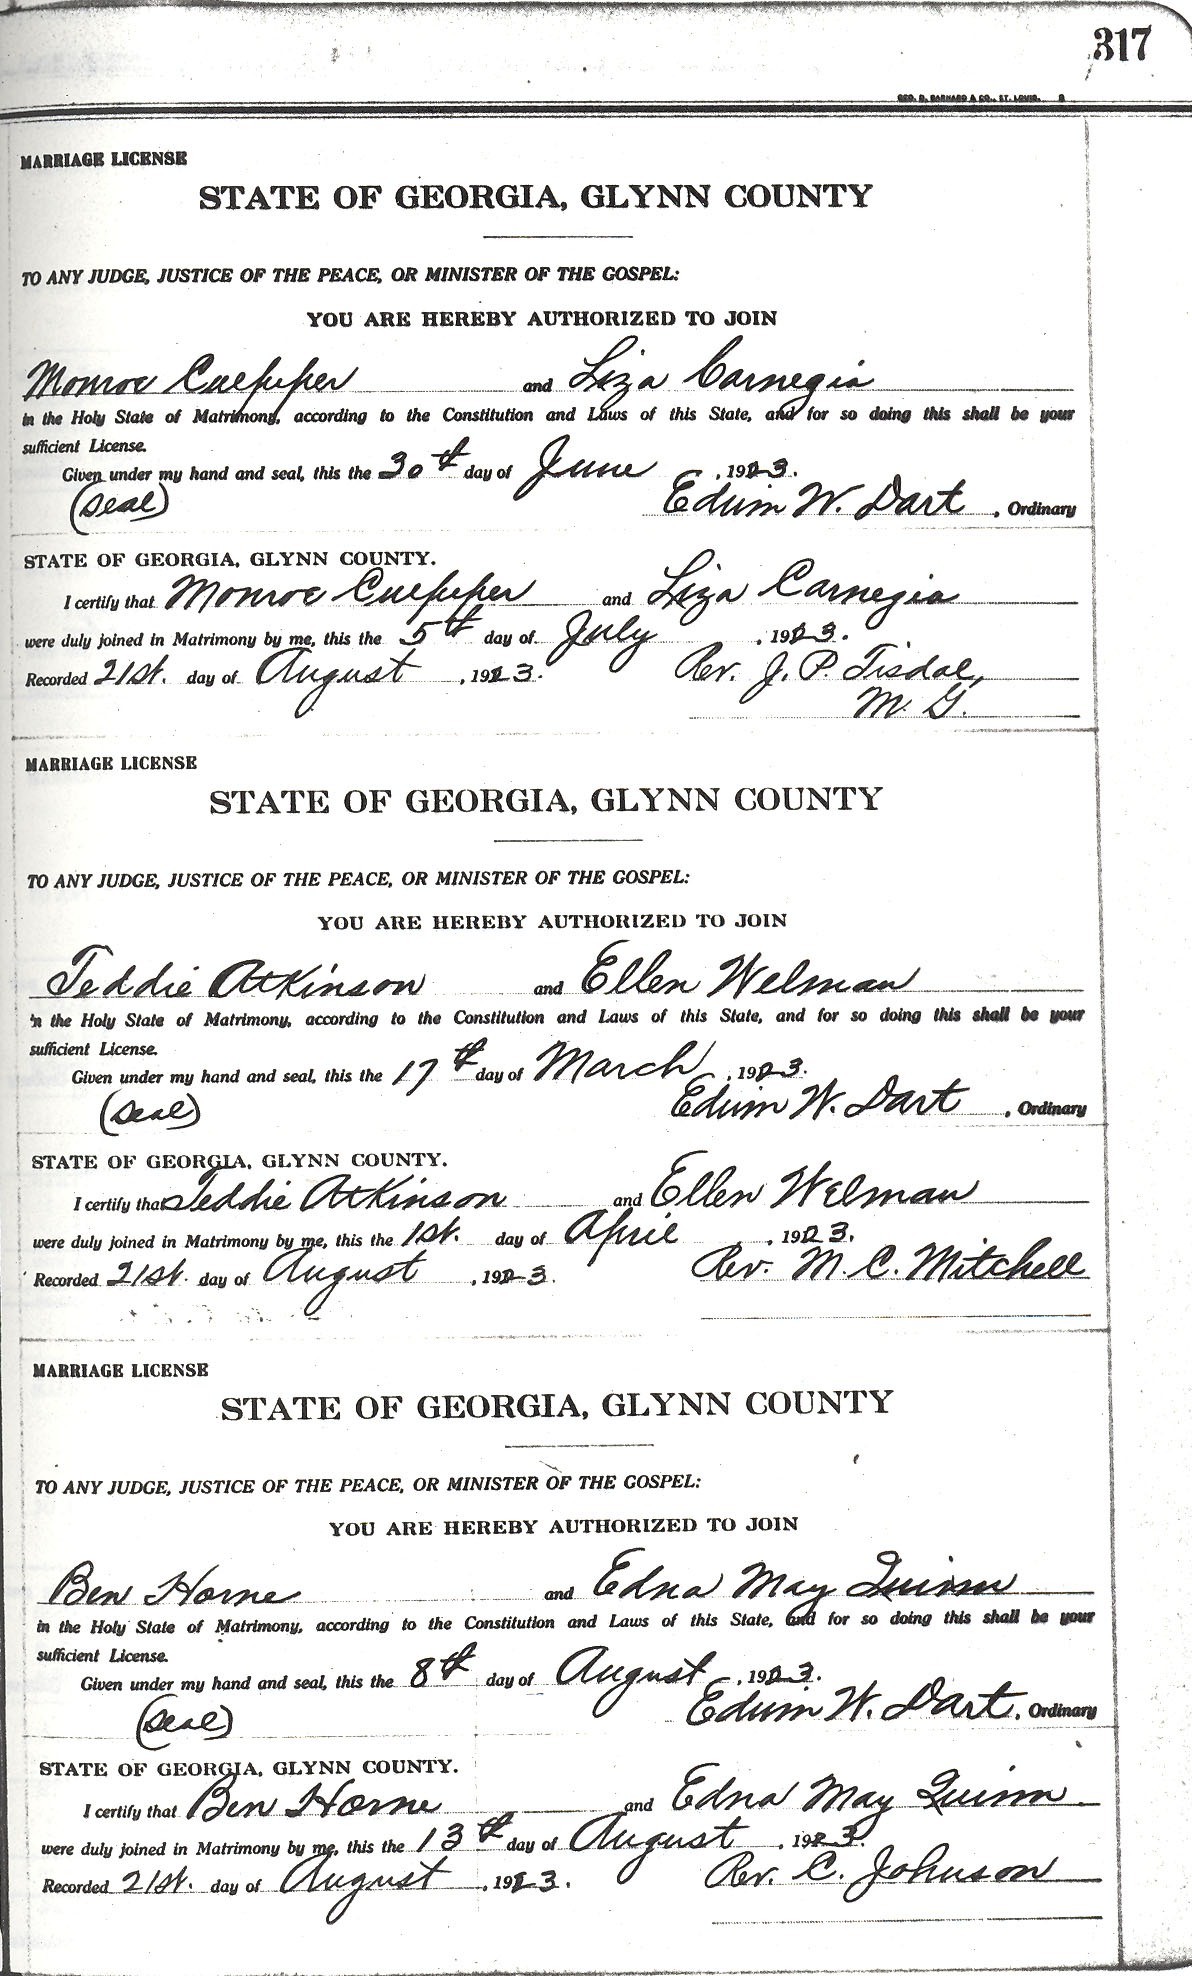 317
GEO. D. BARNARD & CO., ST. LOUIS.
MARRIAGE LICENSE
STATE OF GEORGIA, GLYNN COUNTY
TO ANY JUDGE, JUSTICE OF THE PEACE, OR MINISTER OF THE GOSPEL:
YOU ARE HEREBY AUTHORIZED TO JOIN
Monroe Culpepper and Liza Carnegia
in the Holy State of Matrimony, according to the Constitution and Laws of this State, and for so doing this shall be your
sufficient License.
Given under my hand and seal, this the 30th day of June, 1923.
(Seal) Edwin W. Dart, Ordinary
STATE OF GEORGIA, GLYNN COUNTY.
I certify that Monroe Culpepper and Liza Carnegia
were duly joined in Matrimony by me, this the 5th day of July, 1923.
Recorded 21st. day of August, 1923. Rev. J. P. Tisdal,
M. G.
MARRIAGE LICENSE
STATE OF GEORGIA, GLYNN COUNTY
TO ANY JUDGE, JUSTICE OF THE PEACE, OR MINISTER OF THE GOSPEL:
YOU ARE HEREBY AUTHORIZED TO JOIN
Teddie Atkinson and Ellen Welman
in the Holy State of Matrimony, according to the Constitution and Laws of this State, and for so doing this shall be your
sufficient License.
Given under my hand and seal, this the 17th day of March, 1923.
(Seal) Edwin W. Dart, Ordinary
STATE OF GEORGIA, GLYNN COUNTY.
I certify that Teddie Atkinson and Ellen Welman
were duly joined in Matrimony by me, this the 1st. day of April, 1923.
Recorded 21st. day of August, 1923. Rev. M. C. Mitchell
MARRIAGE LICENSE
STATE OF GEORGIA, GLYNN COUNTY
TO ANY JUDGE, JUSTICE OF THE PEACE, OR MINISTER OF THE GOSPEL:
YOU ARE HEREBY AUTHORIZED TO JOIN
Ben Horne and Edna May Quinn
in the Holy State of Matrimony, according to the Constitution and Laws of this State, and for so doing this shall be your
sufficient License.
Given under my hand and seal, this the 8th day of August, 1923.
(Seal) Edwin W. Dart, Ordinary
STATE OF GEORGIA, GLYNN COUNTY.
I certify that Ben Horne and Edna May Quinn.
were duly joined in Matrimony by me, this the 13th day of August, 1923.
Recorded 21st. day of August, 1923. Rev. C. Johnson